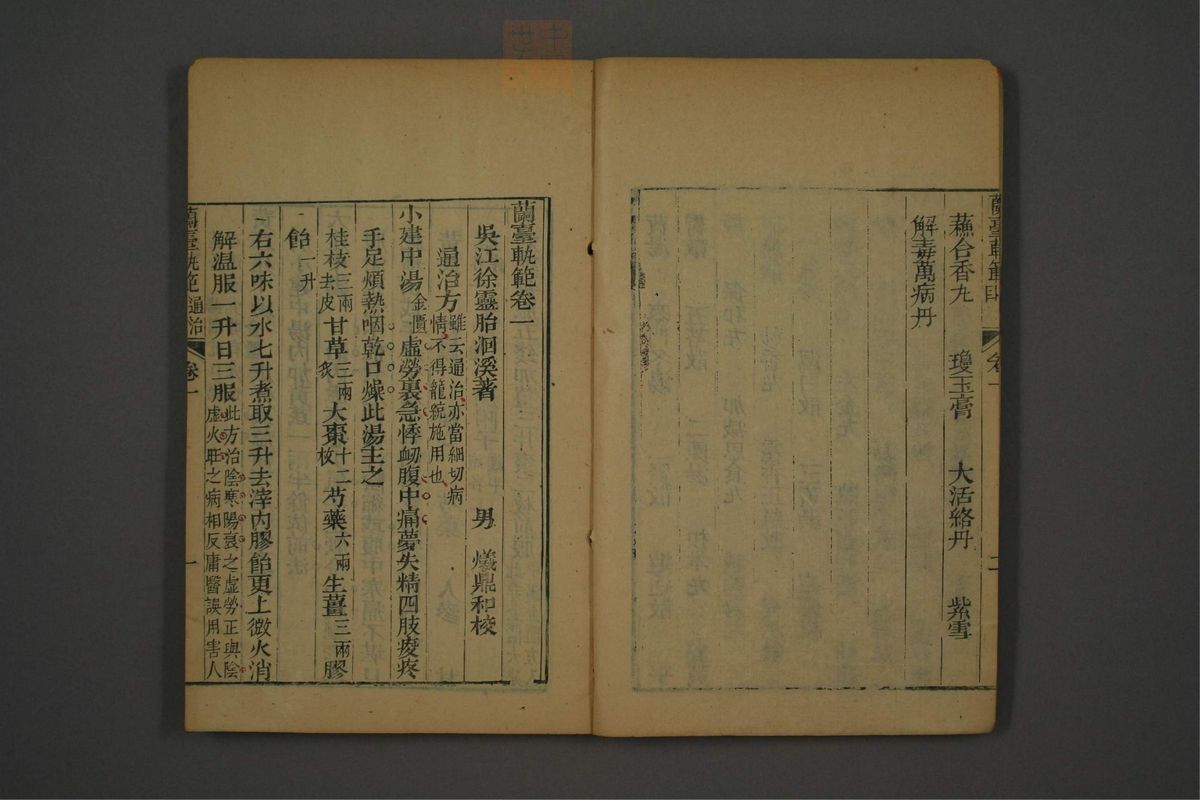 蘭臺軌範
卷一
蘇合香丸 瓊玉膏 大活絡丹 紫雪
解毒萬病丹
蘭臺軌範卷一
吳江徐靈胎洄溪著 男 爔鼎和校
通治方 雖云通治亦當細切病
情不得籠統施用也
小建中湯 金匱 虛勞裏急悸衂腹中痛夢失精四肢痠疼
手足煩熱咽乾口燥此湯主之
桂枝 三兩去皮 甘草 三兩炙 大棗 十二枚 芍藥 六兩 生薑 三兩 膠
飴 一升
右六味以水七升煮取三升去滓內膠飴更上微火消
解溫服一升日三服 此方治陰寒陽衰之虛勞正與陰
虛火旺之病相反庸醫誤用害人
蘭臺軌範 通治 卷一 一